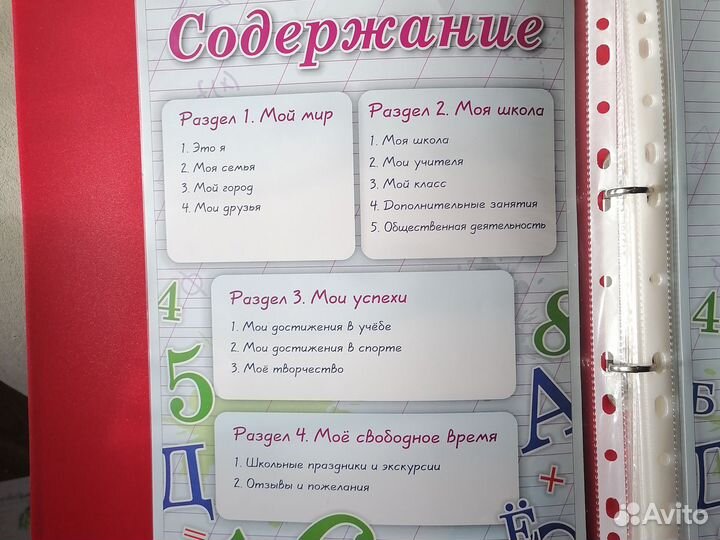 Содержание
Раздел 1. Мой мир
1. Это я
2. Моя семья
3. Мой город
4. Мои друзья
Раздел 2. Моя школа
1. Моя школа
2. Мои учителя
3. Мой класс
4. Дополнительные занятия
5. Общественная деятельность
Раздел 3. Мои успехи
1. Мои достижения в учёбе
2. Мои достижения в спорте
3. Моё творчество
Раздел 4. Моё свободное время
1. Школьные праздники и экскурсии
2. Отзывы и пожелания
4
5
Д
=
8
А
+
Ё
4
Б
Avito